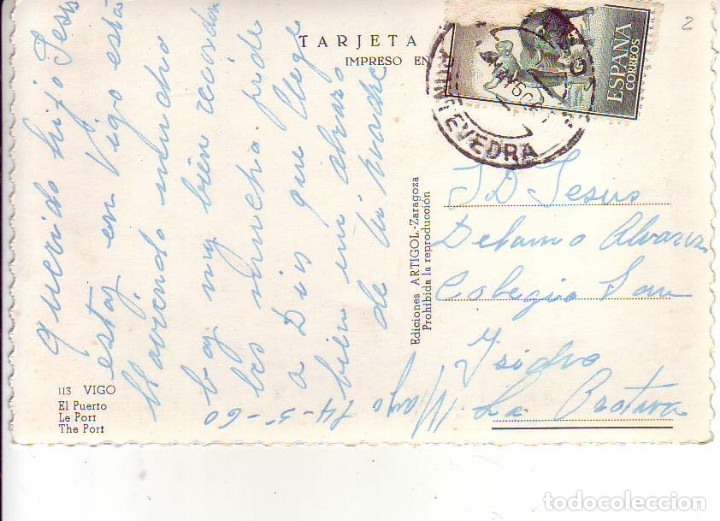 TARJETA
IMPRESO EN
ESPAÑA
CORREOS
PONTEVEDRA
2
Querido hijo Jesus
estoy en Vigo está
lloviendo mucho
boy muy bien recuerdos
mucho pide
a Dios que llege
bien un abrazo
de tu Madre
14-5-60
Ediciones ARTIGOL-Zaragoza
Prohibida la reproducción
S D Jesus
Delamo Alvarez
Colegio San
Isidro
La
113 VIGO
El Puerto
Le Port
The Port
todocoleccion